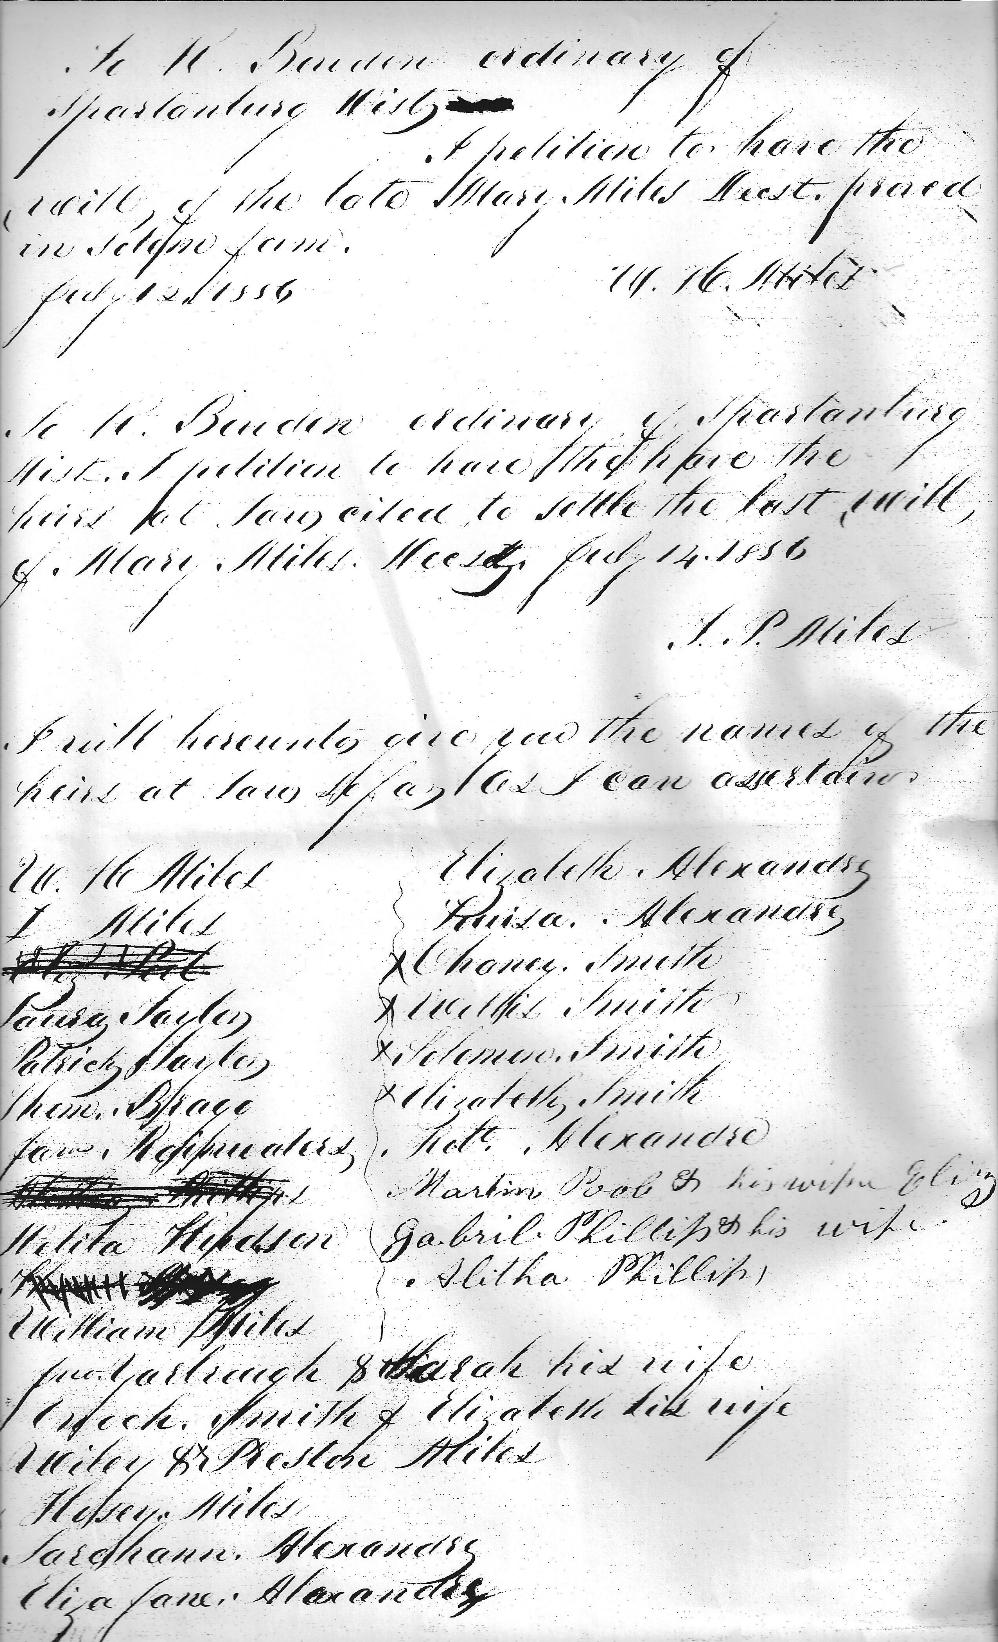 To R. Bowden ordinary of
Spartanburg Dist
I petition to have the
will, of the late Mary Miles Decst. proved
in Solem form.
July 12. 1856
W. H. Miles
To R. Bowden ordinary of Spartanburg
Dist. I petition to have the have the
heirs at Law cited to settle the last will,
of Mary Miles. Decst. July 14. 1856
J. P. Miles
I will hereunto give you the names of the
heirs at Law So far As I can assertain.
W. H Miles
J Miles
Laury Taylor
Patrick Taylor
Them. Brage
Jane Rippueaters
Melita Hudson
William Miles
Jno. Yarbrough & Sarah his wife
Enoch. Smith & Elizabeth his wife
Wiley & Preston Miles
Hosey. Miles
Sarahann. Alexandre
Eliza Jane. Alexandre
Elizabeth Alexandre
Louisa. Alexandre
x Choney. Smith
x Willis Smith
x Solomon. Smith
x Elizabeth Smith
Alexandre
Martin Poole & his wife Eliz
Gabril. Phillips & his wife.
Alitha Phillips